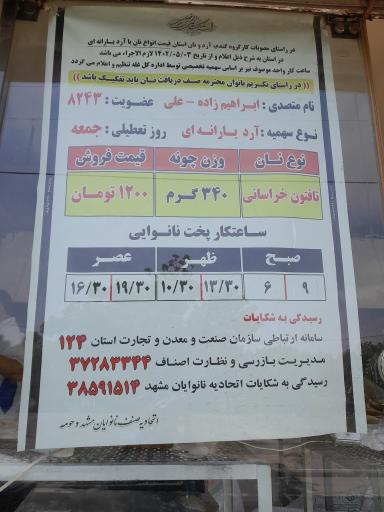 در راستای مصوبات کارگروه گندم، آرد و نان استان قیمت انواع نان با آرد یارانه ای
در استان به شرح ذیل اعلام و از تاریخ ۱۴۰۲/۰۵/۰۳ لازم الاجراء می باشد
ساعت کار واحد موصوف نیز بر اساس سهمیه تخصیصی توسط اداره کل غله تنظیم و اعلام می گردد
(( در راستای تکریم بانوان محترمه صف دریافت نان باید تفکیک باشد ))
نام متصدی : ابراهیم زاده - علی عضویت : ۸۲۴۳
نوع سهمیه: آرد یارانه ای روز تعطیلی : جمعه
نوع نان وزن چونه قیمت فروش
تافتون خراسانی ۳۴۰ گرم ۱۲۰۰ تومان
ساعتکار پخت نانوایی
صبح ظهر عصر
۹ ۶ ۱۳/۳۰ ۱۰/۳۰ ۱۹/۳۰ ۱۶/۳۰
رسیدگی به شکایات
سامانه ارتباطی سازمان صنعت و معدن و تجارت استان ۱۲۴
مدیریت بازرسی و نظارت اصناف ۳۷۲۸۳۳۴۴
رسیدگی به شکایات اتحادیه نانوایان مشهد ۳۸۵۹۱۵۱۴
اتحادیه صنف نانوایان مشهد و حومه